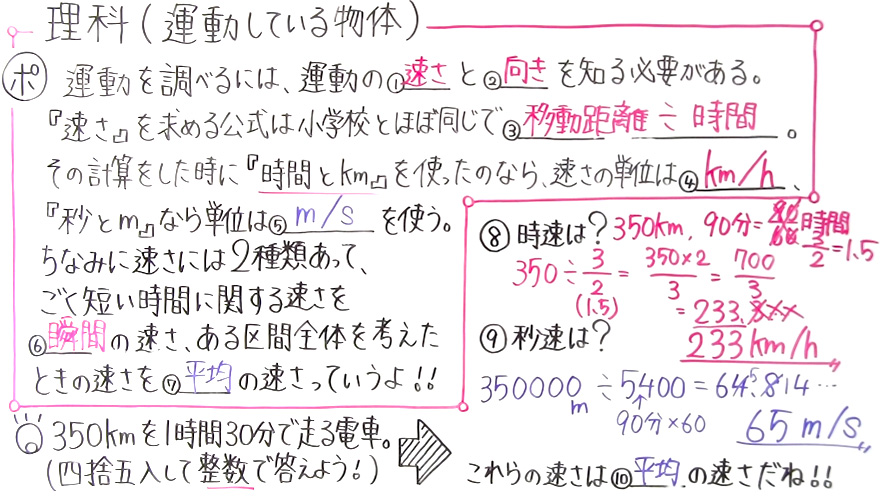 理科(運動している物体)
ポ 運動を調べるには、運動の①速さと②向きを知る必要がある。
『速さ』を求める公式は小学校とほぼ同じで③移動距離÷時間。
その計算をした時に『時間とkm』を使ったのなら、速さの単位は④km/h、
『秒とm』なら単位は⑤m/sを使う。
ちなみに速さには2種類あって、
ごく短い時間に関する速さを
⑥瞬間の速さ、ある区間全体を考えた
ときの速さを⑦平均の速さっていうよ!!
350kmを1時間30分で走る電車。
(四捨五入して整数で答えよう!)
⑧時速は? 350km, 90分=90/60時間
3/2=1.5
350÷3/2=350×2/3=700/3
(1.5)
=233.3××
233km/h
⑨秒速は?
350000m÷5400=64.814…
5
90分×60
65m/s
これらの速さは⑩平均の速さだね!!